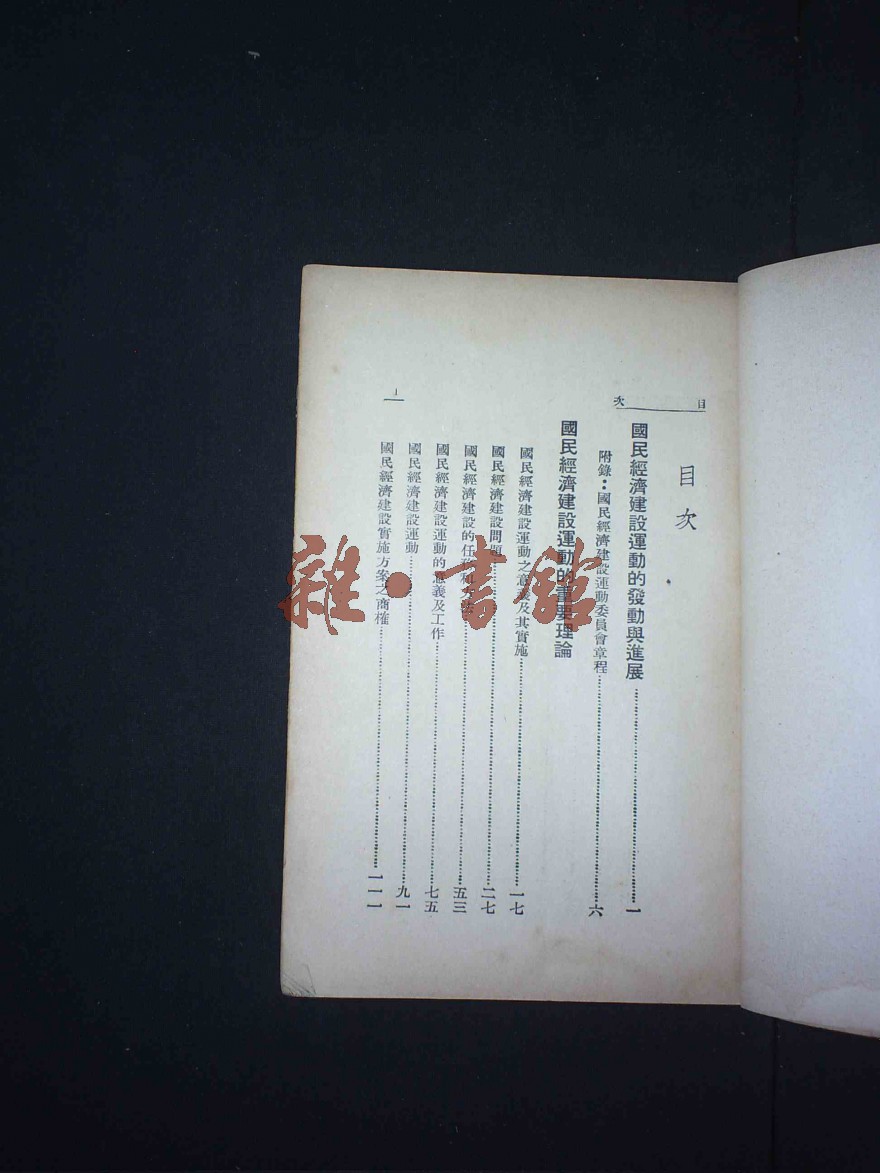 目次
目次
國民經濟建設運動的發動與進展……一
附錄：國民經濟建設運動委員會章程……六
國民經濟建設運動的重要理論
國民經濟建設運動之意義及其實施……一七
國民經濟建設問題……二七
國民經濟建設的任……五三
國民經濟建設運動的意義及工作……七五
國民經濟建設運動……九一
國民經濟建設實施方案之商榷……一一一
1
雜·書館